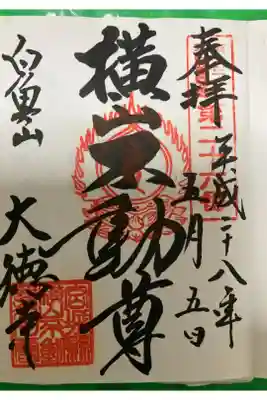 奉拝
平成二十八年
五月五日
横山不動尊
白魚山
大徳寺